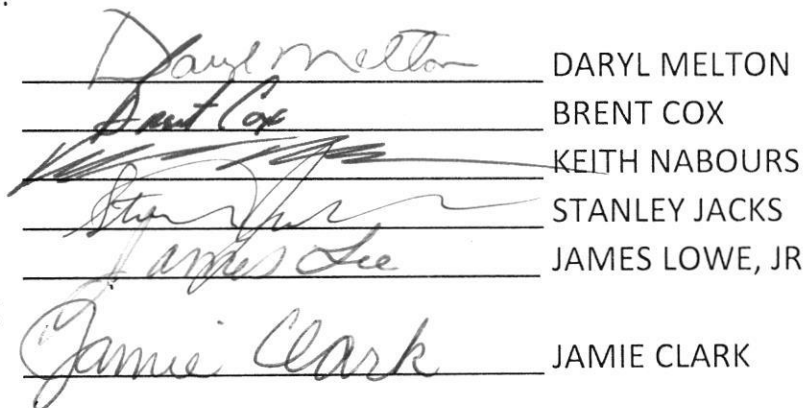 Daryl Melton DARYL MELTON
Brent Cox BRENT COX
KEITH NABOURS
STANLEY JACKS
James Lee JAMES LOWE, JR
Jamie Clark JAMIE CLARK